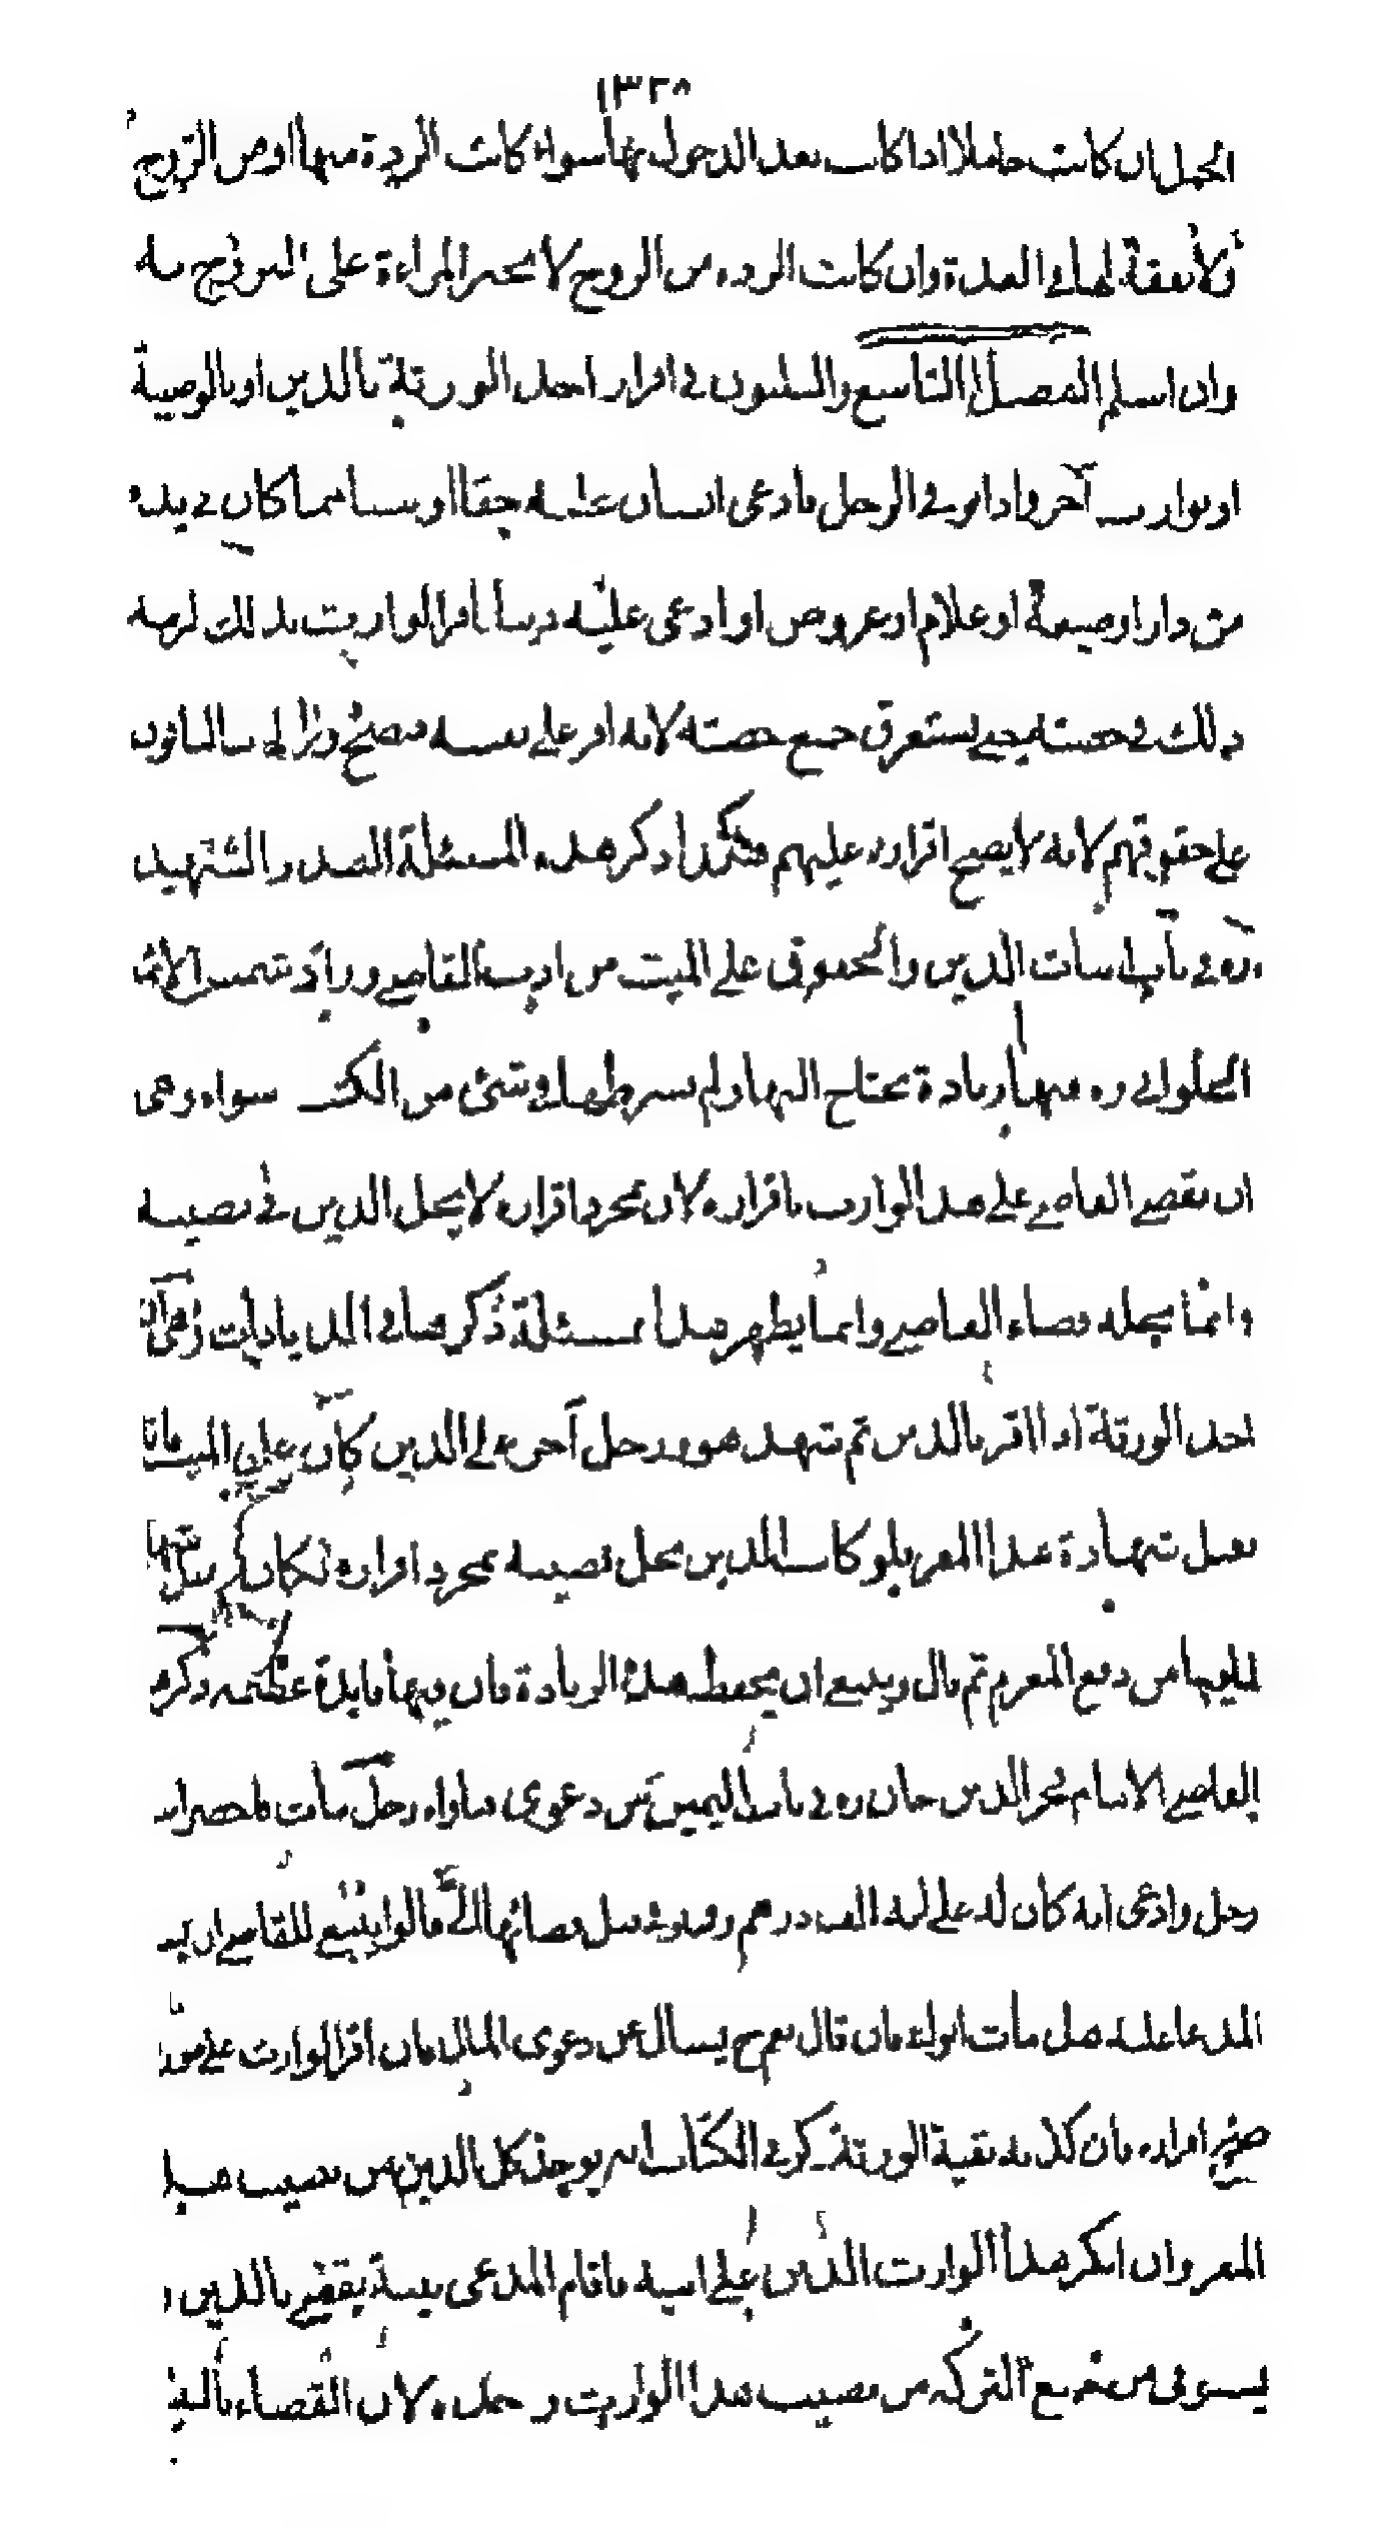 ١٣٢٨
الحمل ان كانت حاملا اذا كانت بعد الدخول بها سواء كانت الردة منها او من الزوج
ولا نفقة لها في العدة وان كانت الردة من الزوج لا تجبر المراءة على التزوج منه
وان اسلم الفصل التاسع والستون في اقرار احد الورثة بالدين او بالوصية
او بوارث آخر واذا توفي الرجل فادعى انسان عليه حقا او شيئا مما كان في يده
من دار او ضيعة او غلام او عروض او ادعى عليه دينا فاقر الوارث بذلك لزمه
ذلك في حصته حتى يستغرق جميع حصته لانه اقر على نفسه فصح
على حقوقهم لانه لا يصح اقراره عليهم هكذا ذكر هذه المسئلة الصدر الشهيد
ره في باب اثبات الدين والحقوق على الميت من ادب القاضي وزاد شمس الائمة
الحلواني ره فيها زيادة يحتاج اليها ولم يشرطها في شئ من الكتب سواه وهي
ان يقضي القاضي على هذا الوارث باقراره لان بمجرد اقراره لا يحل الدين في نصيبه
وانما يحله قضاء القاضي وانما يظهر هذا بمسئلة ذكرها في الزيادات وهي ان
احد الورثة اذا اقر بالدين ثم شهد هو ورجل آخر على الدين كان على الميت فانه
تقبل شهادة هذا المقر فلو كان الدين يحل نصيبه بمجرد اقراره لكان لم يقبل شها
لما فيها من دفع المغرم ثم قال وينبغي ان يحفظ هذه الزيادة فان فيها فايدة عظيمة وذكر
القاضي الامام فخر الدين خان ره في باب اليمين من دعوى فتاواه رجل مات فاحضر ابنه
رجل وادعى انه كان له على ابيه الف درهم قالوا ينبغي للقاضي ان
المدعا عليه هل مات ابوك فان قال نعم ح يسال عن دعوى المال فان اقر الوارث على
صح اقراره فان كذبه بقية الورثة ذكر في الكتاب انه يوخذ كل الدين من نصيب هذا
المقر وان انكر هذا الوارث الدين على ابيه فاقام المدعي بينة يقضي بالدين و
يستوفى من جميع التركة من نصيب هذا الوارث وحده لان القضاء بالبينة